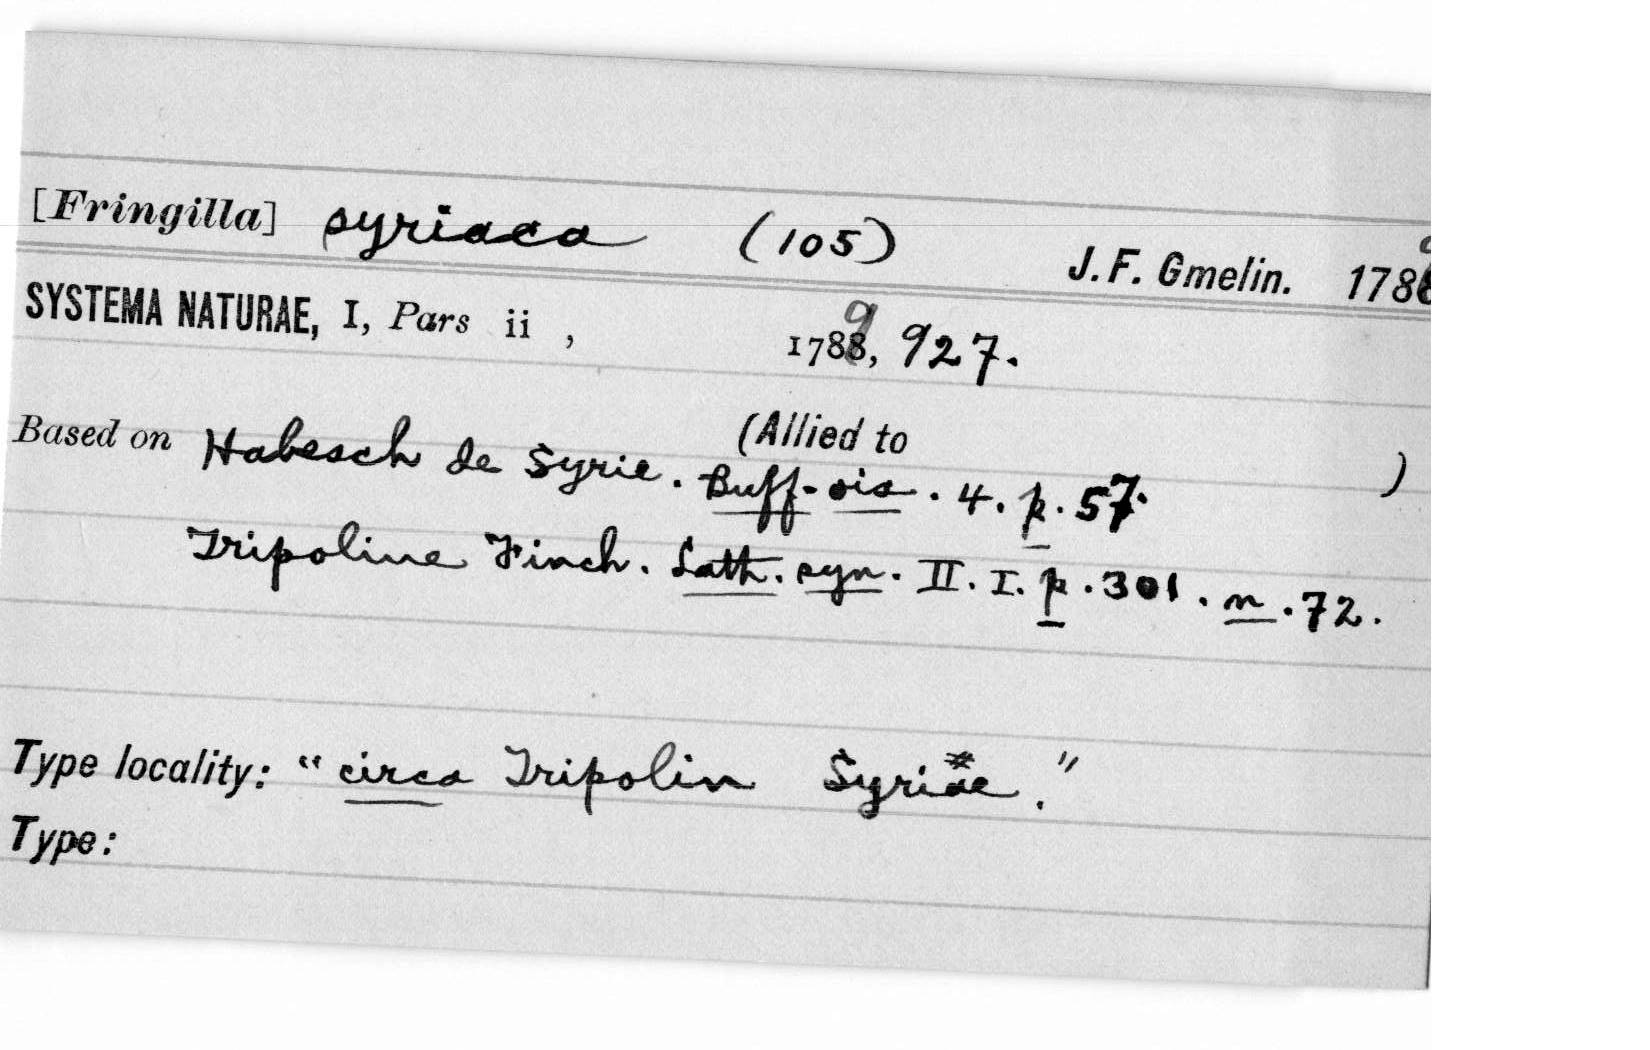 [Fringilla] syriaca (105) J. F. Gmelin. 178
SYSTEMA NATURAE, I, Pars ii , 1789, 927.
Based on Habesch de Syrie. (Allied to )
Buff. ois. 4. p. 57.
Tripoline Finch. Lath. syn. II. I. p. 301. n. 72.
Type locality: "circa Tripolin Syriae."
Type: